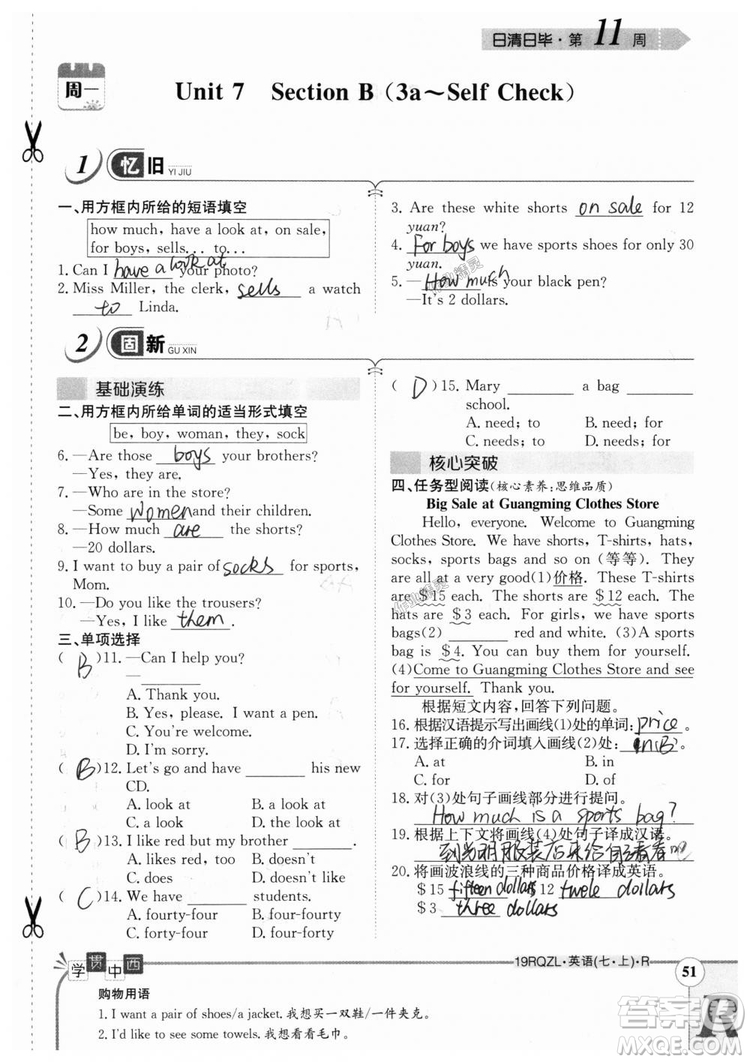 日清日毕·第11周
周一
Unit 7 Section B (3a～Self Check)
1 忆旧 YI JIU
一、用方框内所给的短语填空
how much, have a look at, on sale,
for boys, sells... to...
1. Can I have a look at your photo?
2. Miss Miller, the clerk, sells a watch
to Linda.
3. Are these white shorts on sale for 12
yuan?
4. For boys we have sports shoes for only 30
yuan.
5. —How much is your black pen?
—It's 2 dollars.
2 固新 GU XIN
基础演练
二、用方框内所给单词的适当形式填空
be, boy, woman, they, sock
6. —Are those boys your brothers?
—Yes, they are.
7. —Who are in the store?
—Some women and their children.
8. —How much are the shorts?
—20 dollars.
9. I want to buy a pair of socks for sports,
Mom.
10. —Do you like the trousers?
—Yes, I like them.
三、单项选择
( B )11. —Can I help you?
—________
A. Thank you.
B. Yes, please. I want a pen.
C. You're welcome.
D. I'm sorry.
( B )12. Let's go and have ________ his new
CD.
A. look at B. a look at
C. a look D. looks at
( B )13. I like red but my brother ________.
A. doesn't like red B. doesn't
C. does D. doesn't like
( C )14. We have ________ students.
A. fourty-four B. fourty-four
C. forty-four D. forty-four
( D )15. Mary ________ a bag ________
school.
A. need; to B. need; for
C. needs; to D. needs; for
核心突破
四、任务型阅读(核心素养:思维品质)
Big Sale at Guangming Clothes Store
Hello, everyone. Welcome to Guangming
Clothes Store. We have shorts, T-shirts, hats,
socks, sports bags and so on(等等). They are
all at a very good(1)价格. These T-shirts
are $15 each. The shorts are $12 each. The
hats are $3 each. For girls, we have sports
bags(2) ________ red and white. (3)A sports
bag is $4. You can buy them for yourself.
(4)Come to Guangming Clothes Store and see
for yourself. Thank you.
根据短文内容,回答下列问题。
16. 根据汉语提示写出画线(1)处的单词: price
17. 选择正确的介词填入画线(2)处: in B
A. at B. in
C. to D. of
18. 对(3)处句子画线部分进行提问。
How much is a sports bag?
19. 根据上下文将画线(4)处句子译成汉语。
到光明服装店来给自己看看吧
20. 将画波浪线的三种商品价格译成英语。
$15 fifteen dollars $12 twele dollars
$3 three dollars
学贯中西
购物用语
1. I want a pair of shoes/a jacket. 我想买一双鞋/一件夹克。
2. I'd like to see some towels. 我想看看毛巾。
19RQZL·英语(七·上)·R
51
MXQE.COM